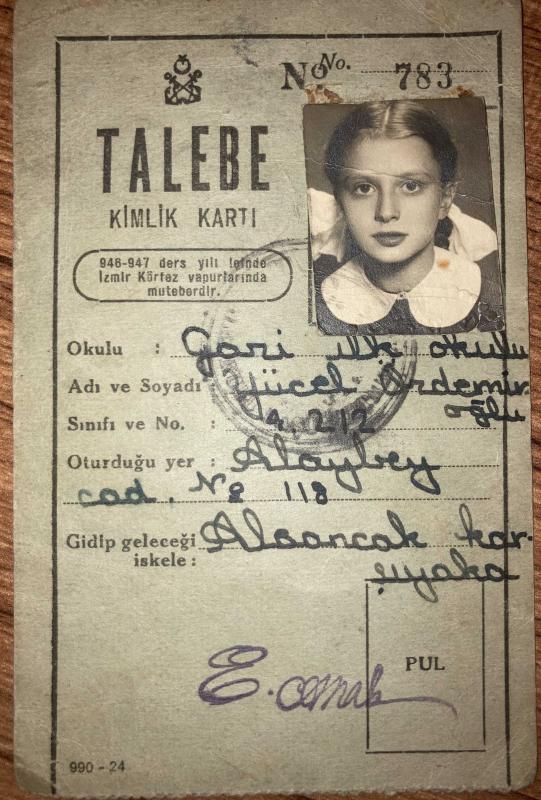 No No. 783
TALEBE
KİMLİK KARTI
946-947 ders yılı içinde
İzmir Körfez vapurlarında
muteberdir.
Okulu : Gazi ilk okulu
Adı ve Soyadı Yücel Erdemir
oğlu
Sınıfı ve No. : 4, 212
Oturduğu yer : Alaybey
cad. No 118
Gidip geleceği Alsancak kar-
iskele : şıyaka
PUL
990 - 24